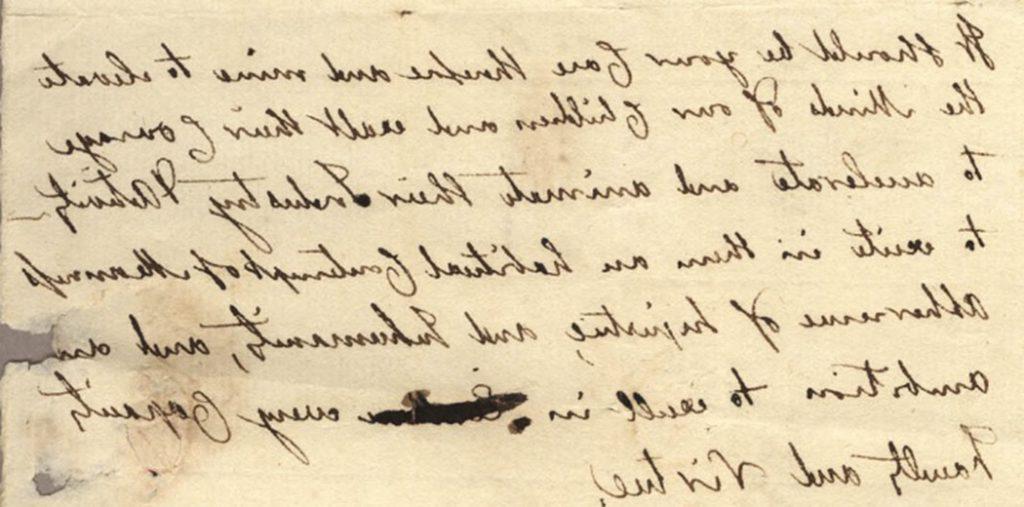 It should be your Care therefore and mine to elevate
the Minds of our Children and exalt their Courage
to accelerate and animate their Industry & Activity
to excite in them an habitual Contempt of Meanness
abhorrence of Injustice and Inhumanity, and an
ambition to excell in every Capacity
Faculty and Virtue